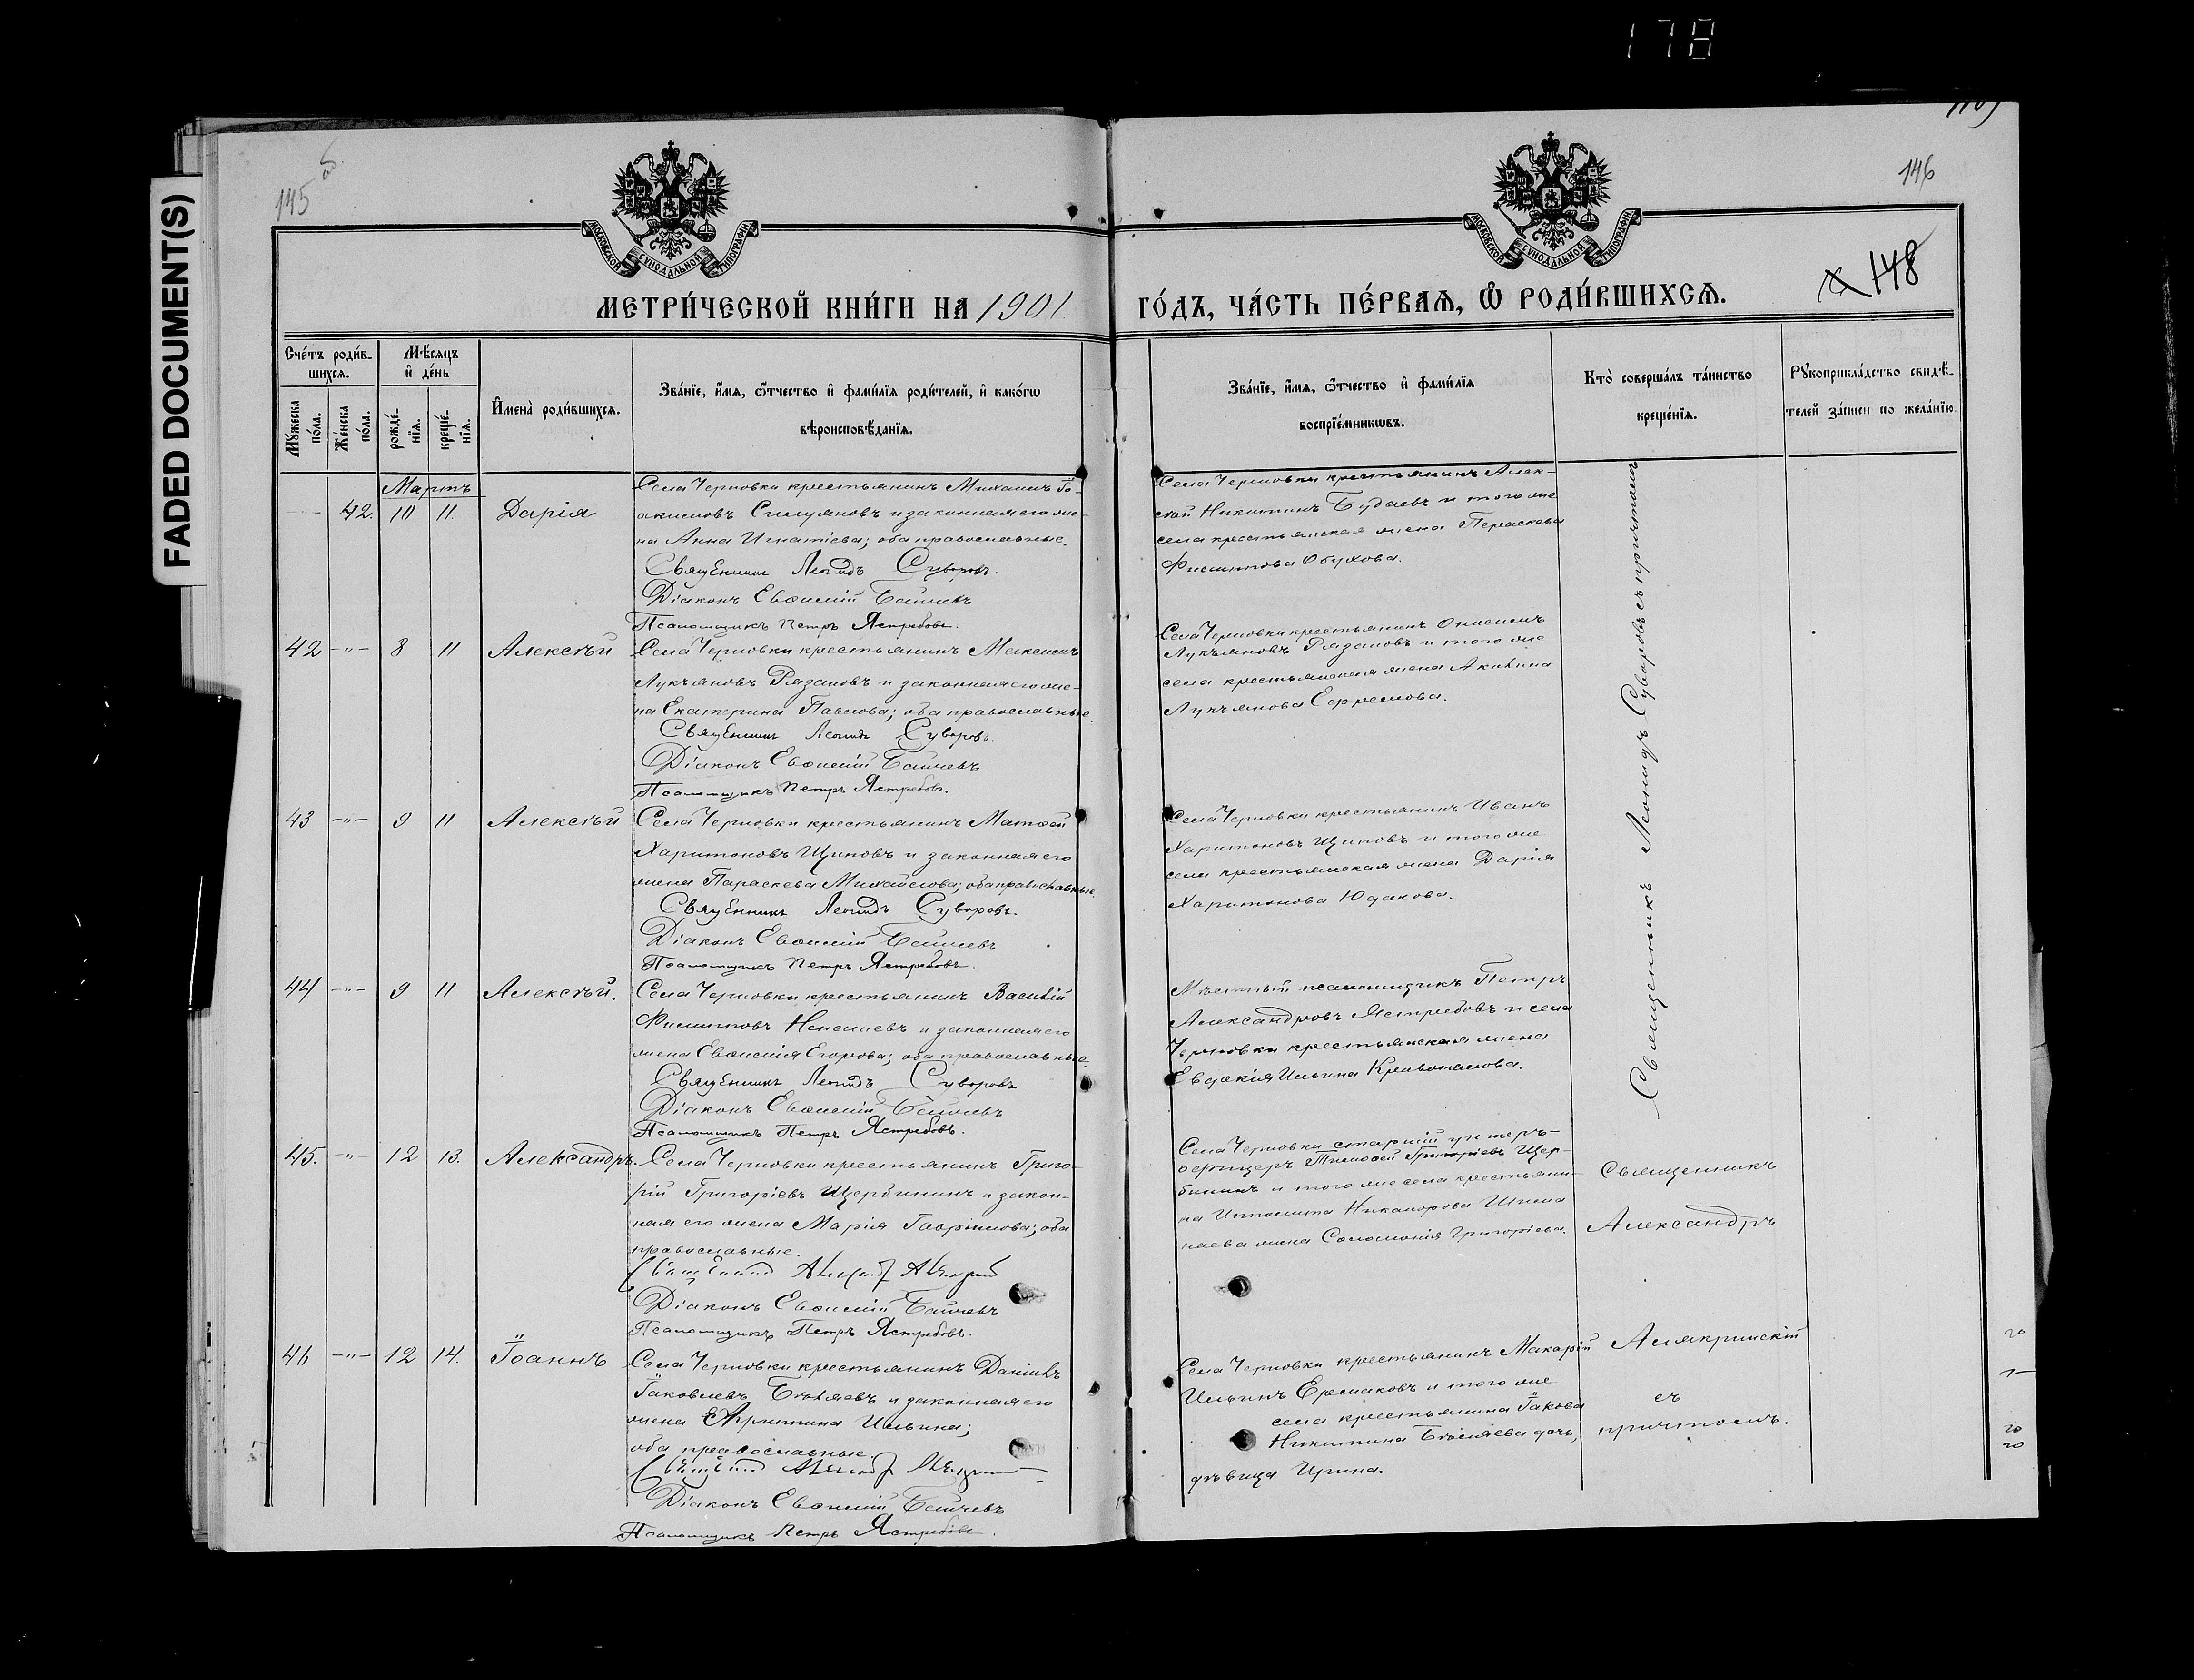 178
FADED DOCUMENT(S)
145
об
146
148
МОСКОВСКОЙ СѴНОДАЛЬНОЙ ТИПОГРАФІИ
МОСКОВСКОЙ СѴНОДАЛЬНОЙ ТИПОГРАФІИ
МЕТРИ́ЧЕСКОЙ КНИ́ГИ НА 1901
ГО́ДЪ, ЧА́СТЬ ПЕ́РВАѦ, Ѽ РОДИ́ВШИХСѦ.
Сче́тъ роди́в-
шихсѧ.
Мꙋжеска по́ла.
Же́нска по́ла.
Мѣ́сѧцъ
и҆ де́нь
рожде́-
нїѧ.
креще́-
нїѧ.
И҆мена̀ роди́вшихсѧ.
Зва́нїе, и҆́мѧ, ѻ҆́тчество и҆ фами́лїѧ роди́телей, и҆ како́гѡ
вѣроисповѣ́данїѧ.
Зва́нїе, и҆́мѧ, ѻ҆́тчество и҆ фами́лїѧ
воспрїе́мникѡвъ.
Кто̀ соверша́лъ та́инство
креще́нїѧ.
Рꙋкоприкла́дство свидѣ́-
телей за́писи по жела́нїю.
Мартъ
42. 10 11. Дарія
Села Черновки крестьянинъ Михаилъ Іо-
акимовъ Силуяновъ и законная его же-
на Анна Игнатіева; оба православные.
Священникъ Леонидъ Суворовъ.
Діаконъ Евѳимій
Псаломщикъ Петръ Ястребовъ.
Села Черновки крестьянинъ Алек-
сѣй Никитинъ Будаевъ и того же
села крестьянская жена Параскева
Филиппова Обухова.
42 -"- 8 11 Алексѣй
Села Черновки крестьянинъ Максимъ
Лукьяновъ Рязановъ и законная его же-
на Екатерина Павлова; оба православные.
Священникъ Леонидъ Суворовъ.
Діаконъ Евѳимій
Псаломщикъ Петръ Ястребовъ.
Села Черновки крестьянинъ Онисимъ
Лукьяновъ Рязановъ и того же
села крестьянская жена Акилина
Лукьянова Ефремова.
43 -"- 9 11 Алексѣй
Села Черновки крестьянинъ Матѳей
Харитоновъ Щиповъ и законная его
жена Параскева Михайлова; оба православные.
Священникъ Леонидъ Суворовъ.
Діаконъ Евѳимій
Псаломщикъ Петръ Ястребовъ.
Села Черновки крестьянинъ Иванъ
Харитоновъ Щиповъ и того же
села крестьянская жена Дарія
Харитонова Юдакова.
44 -"- 9 11 Алексѣй.
Села Черновки крестьянинъ Василій
Филипповъ и законная его
жена Евѳимія Егорова; оба православные.
Священникъ Леонидъ Суворовъ
Діаконъ Евѳимій
Псаломщикъ Петръ Ястребовъ.
Мѣстный псаломщикъ Петръ
Александровъ Ястребовъ и села
Черновки крестьянская жена
Евдокія Ильина
Священникъ Леонидъ Суворовъ съ причтомъ
45. -"- 12 13. Александръ.
Села Черновки крестьянинъ Григо-
рій Григоріевъ Щербининъ и закон-
ная его жена Марія Гавріилова; оба
православные.
Священникъ
Діаконъ Евѳимій
Псаломщикъ Петръ Ястребовъ.
Села Черновки старшій унтеръ-
офицеръ Тимоѳей Григоріевъ Щер-
бининъ и того же села крестьяни-
на Ипполита Никанорова
жена Соломонія Григоріева.
46 -"- 12 14. Іоаннъ
Села Черновки крестьянинъ Даніилъ
Іаковлевъ и законная его
жена Агриппина Ильина;
оба православные.
Священникъ
Діаконъ Евѳимій
Псаломщикъ Петръ Ястребовъ.
Села Черновки крестьянинъ Макарій
Ильинъ Ермаковъ и того же
села крестьянина Іакова
Никитина дочь,
дѣвица Ирина.
Священникъ
Александръ
Алякринскій
съ
причтомъ.